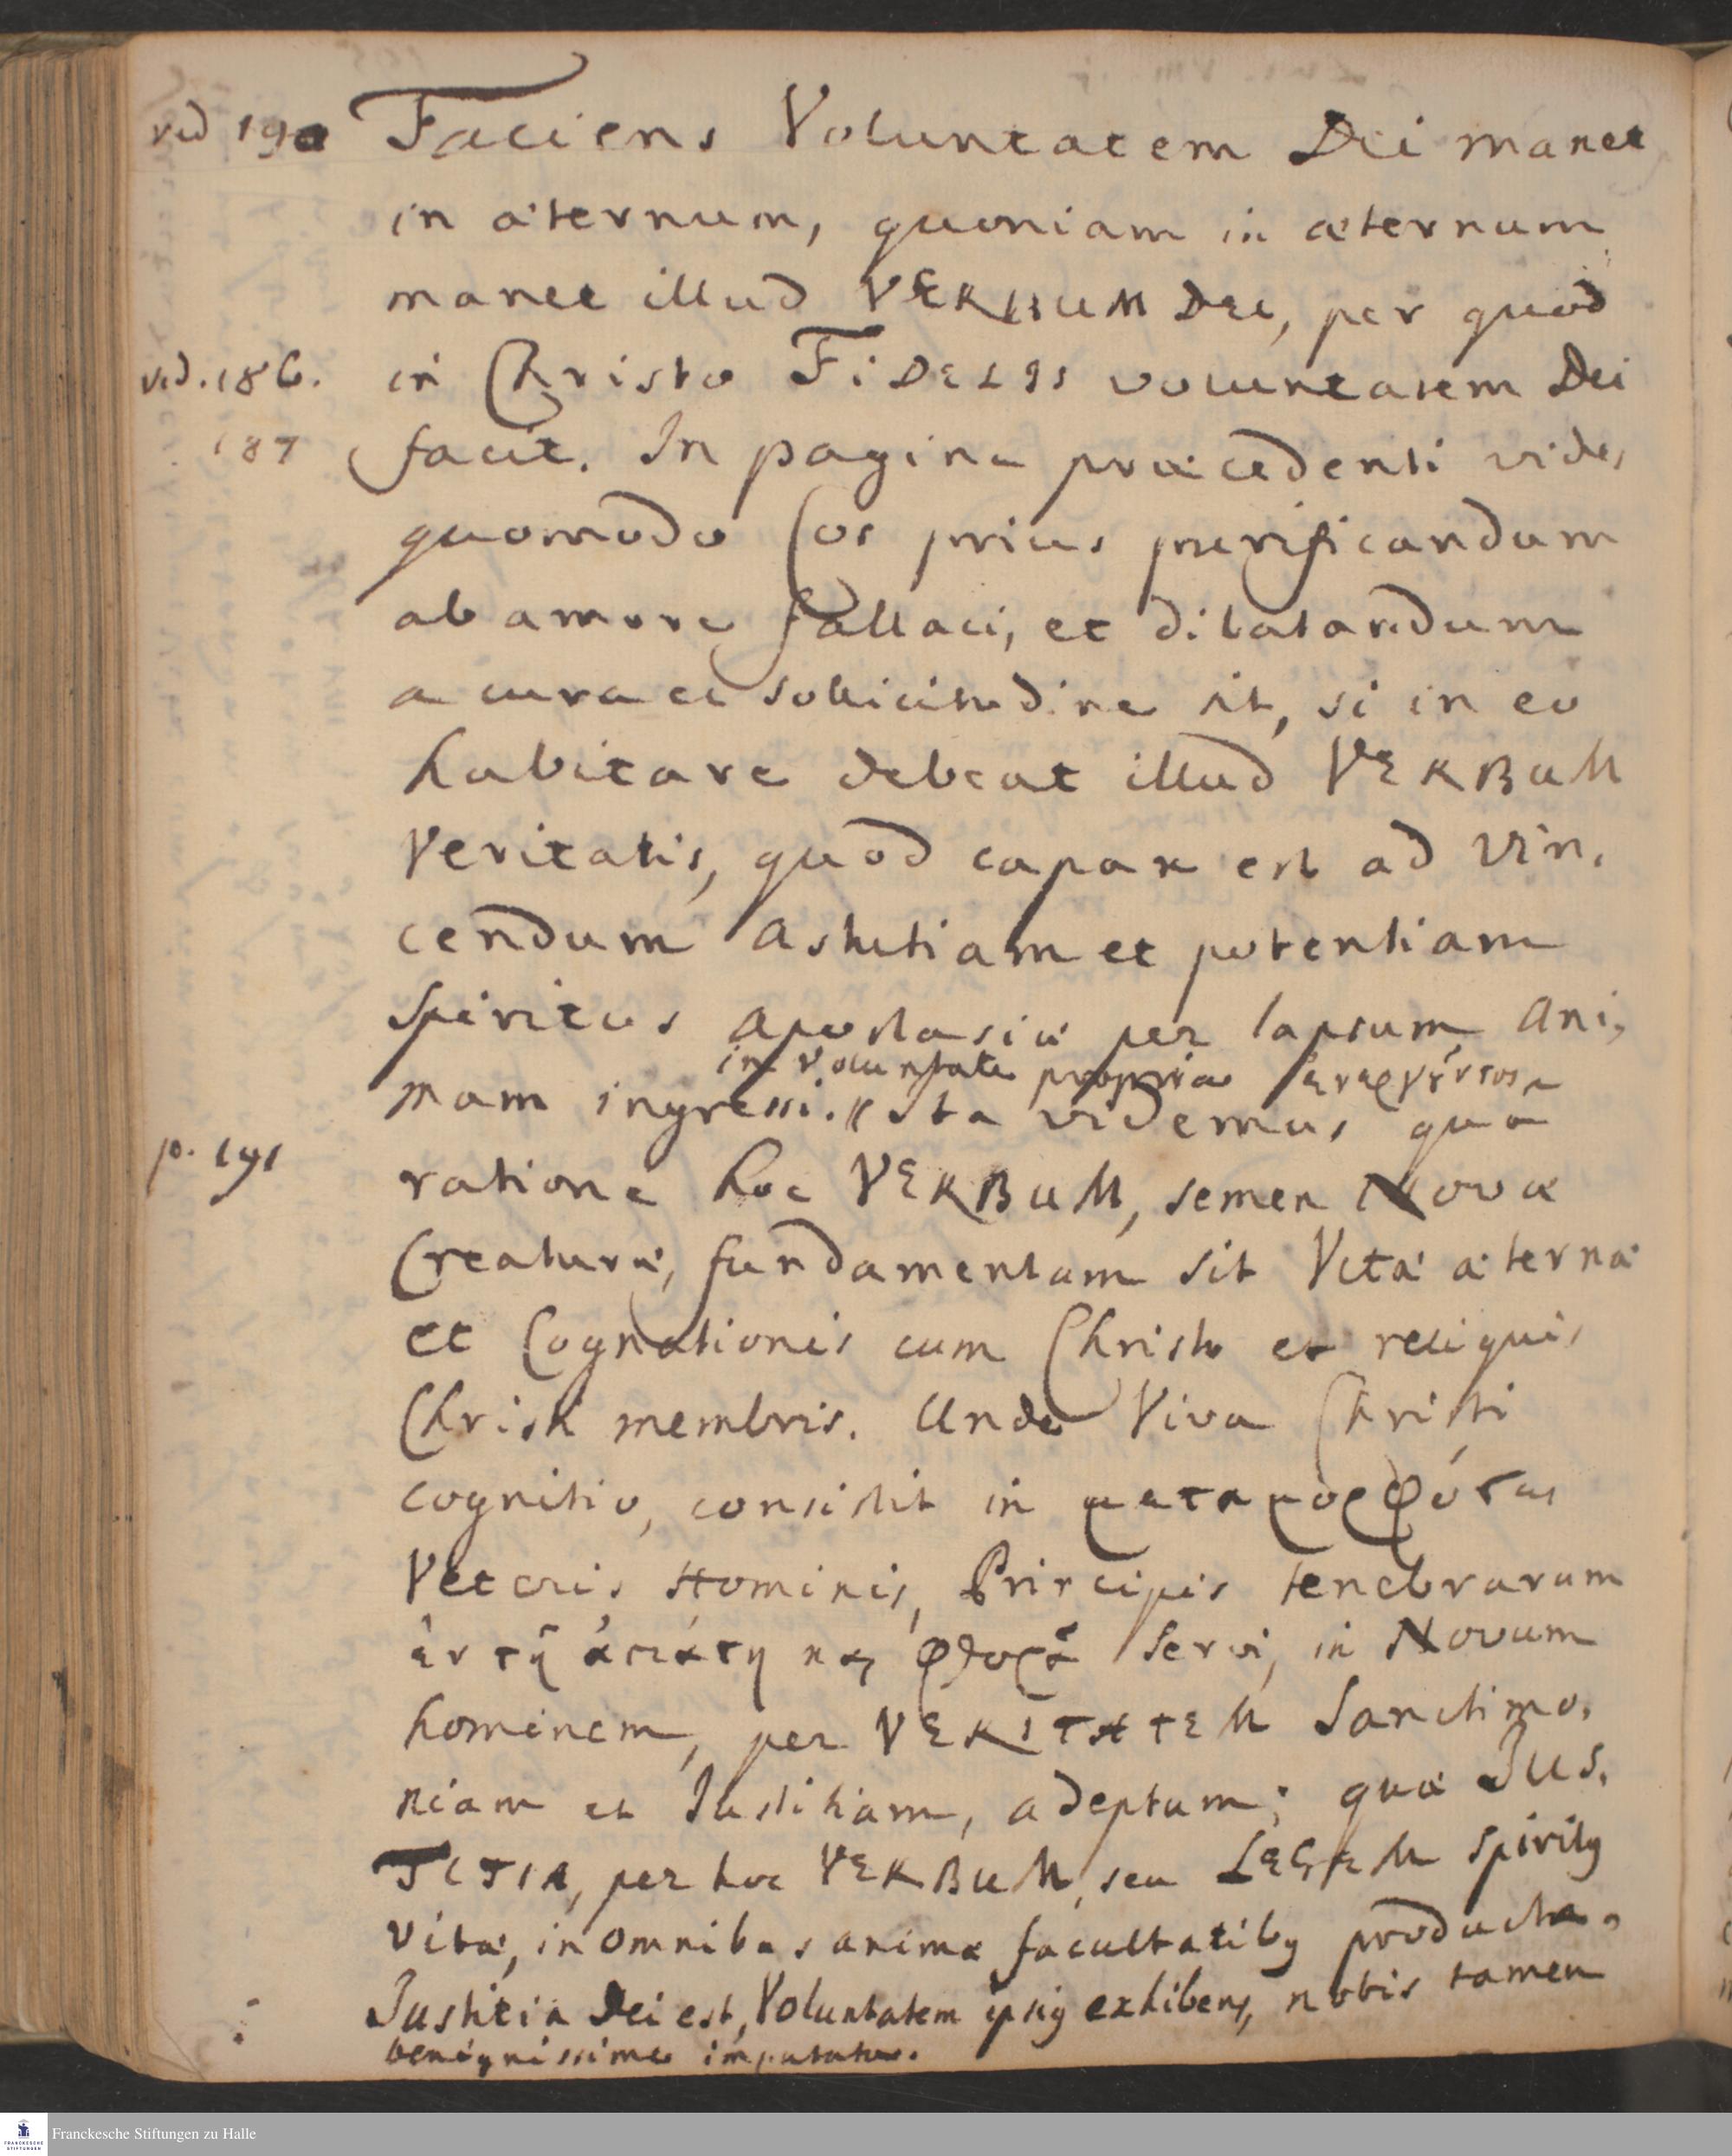 vid 190 Faciens Voluntatem Dei manet
in æternum, quoniam in æternum
manet illud VERBUM DEI, per quod
vid. 186. in Christo FIDELIS voluntatem Dei
187 facit. In pagina præcedenti vide,
quomodo Cor prius purificandum
ab amore fallaci, et dilatandum
a cura et sollicitudine sit, si in eo
habitare debeat illud VERBUM
Veritatis, quod capax est ad vin,
cendum astutiam et potentiam
Spiritus apostasiæ per lapsum ani,
in voluntate propria ἐνεργοῦντος
mam ingressi. Ita videmus quâ
p. 191 ratione hoc VERBUM, semen Novæ
Creaturæ, fundamentum sit Vitæ æternæ
et Cognationis cum Christo et reliquis
Christi membris. Unde Viva Christi
cognitio, consistit in
Veteris Hominis, Principis tenebrarum
ἐν τῇ ἀπάτῃ καὶ φθορᾷ servi, in Novum
hominem, per VERITATEM Sanctimo,
niam et Justitiam, adeptum; quæ JUS,
TITIA, per hoc VERBUM, seu LEGEM Spiritus
vitæ, in omnibus animæ facultatibus producta,
Justitia Dei est, Voluntatem ipsius exhibens, nobis tamen
benignissime imputatur.
FRANCKESCHE
STIFTUNGEN
Franckesche Stiftungen zu Halle